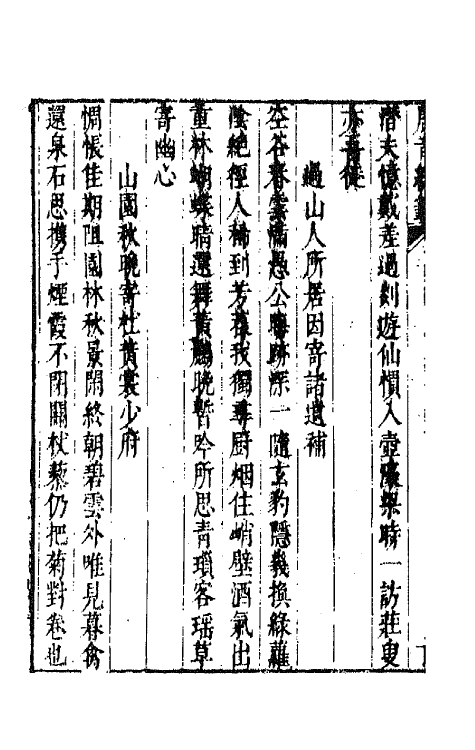 潛夫憶戴差過剡遊仙慣入壺濠梁時一訪莊叟
亦吾徒
過山人所居因寄諸遺補
空谷春雲滿愚公晦跡深一隨玄豹隱幾換綠蘿
陰絕徑人稀到芳蓀我獨尋厨烟住峭壁酒氣出
重林蝴蝶晴還舞黃鸝晚暫吟所思青瑣客瑶草
寄幽心
山園秋晚寄杜黃裳少府
惆悵佳期阻園林秋景閑終朝碧雲外唯見暮禽
還泉石思携手煙霞不閉關杖藜仍把菊對卷也